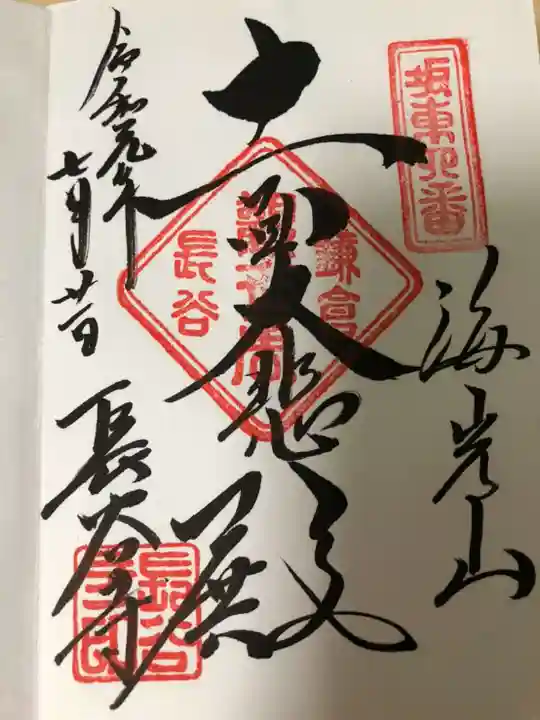 坂東四番
海光山
十一面大悲殿
鎌倉
観世音
長谷
令和元年
七月廿日
長谷寺